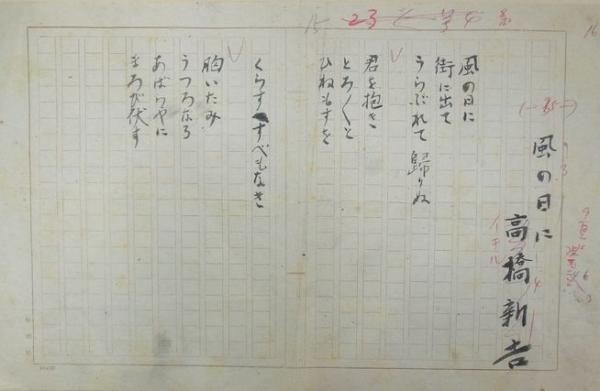 風の日に
高橋新吉
風の日に
街に出て
うらぶれて帰りぬ
君を抱き
とろ〳〵と
ひねもすを
くらすすべもなき
胸いたみ
うつろなる
あばらやに
まろび伏す